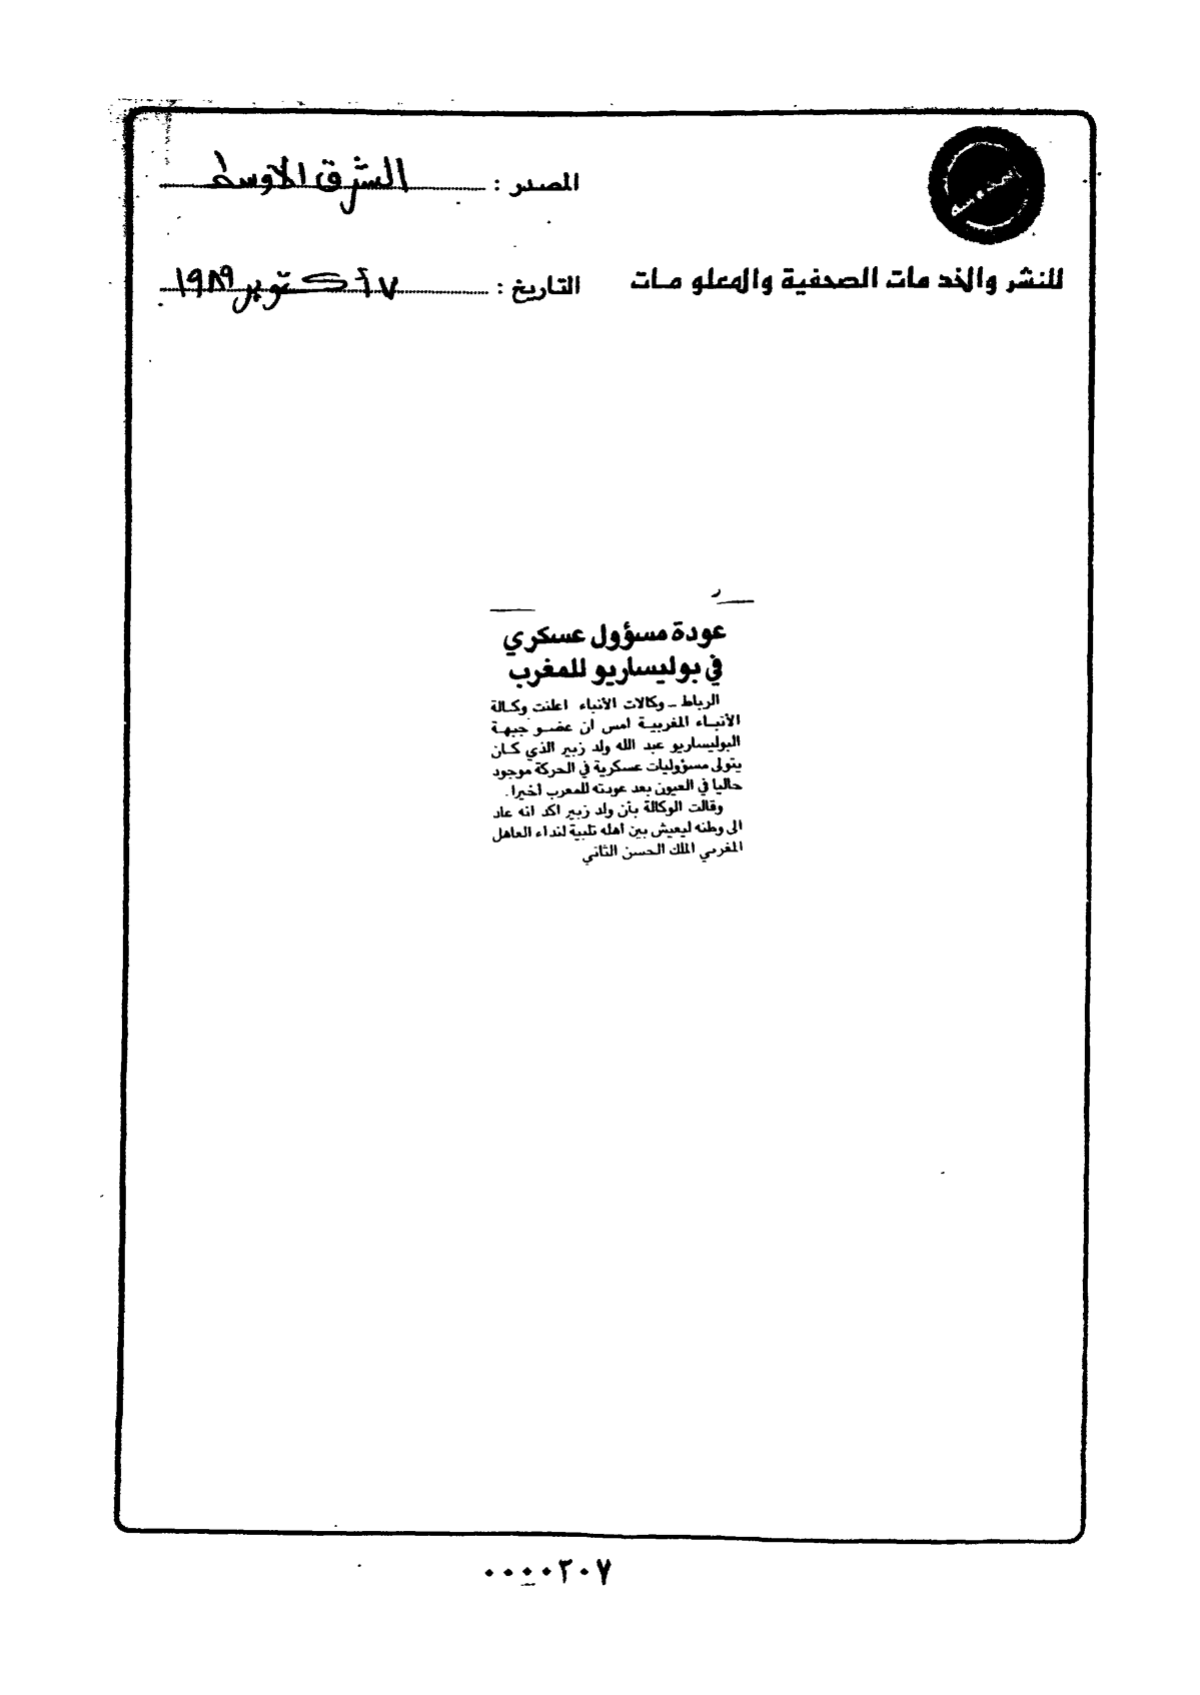 المصدر : الشرق الأوسط
للنشر والخدمات الصحفية والمعلومات
التاريخ : ٧ أكتوبر ١٩٨٩
عودة مسؤول عسكري
في بوليساريو للمغرب
الرباط ــ وكالات الأنباء اعلنت وكالة
الأنباء المغربية امس ان عضو جبهة
البوليساريو عبد الله ولد زبير الذي كان
يتولى مسؤوليات عسكرية في الحركة موجود
حاليا في العيون بعد عودته للمغرب أخيرا .
وقالت الوكالة بأن ولد زبير اكد انه عاد
الى وطنه ليعيش بين اهله تلبية لنداء العاهل
المغربي الملك الحسن الثاني
٠٠٠٠٢٠٧